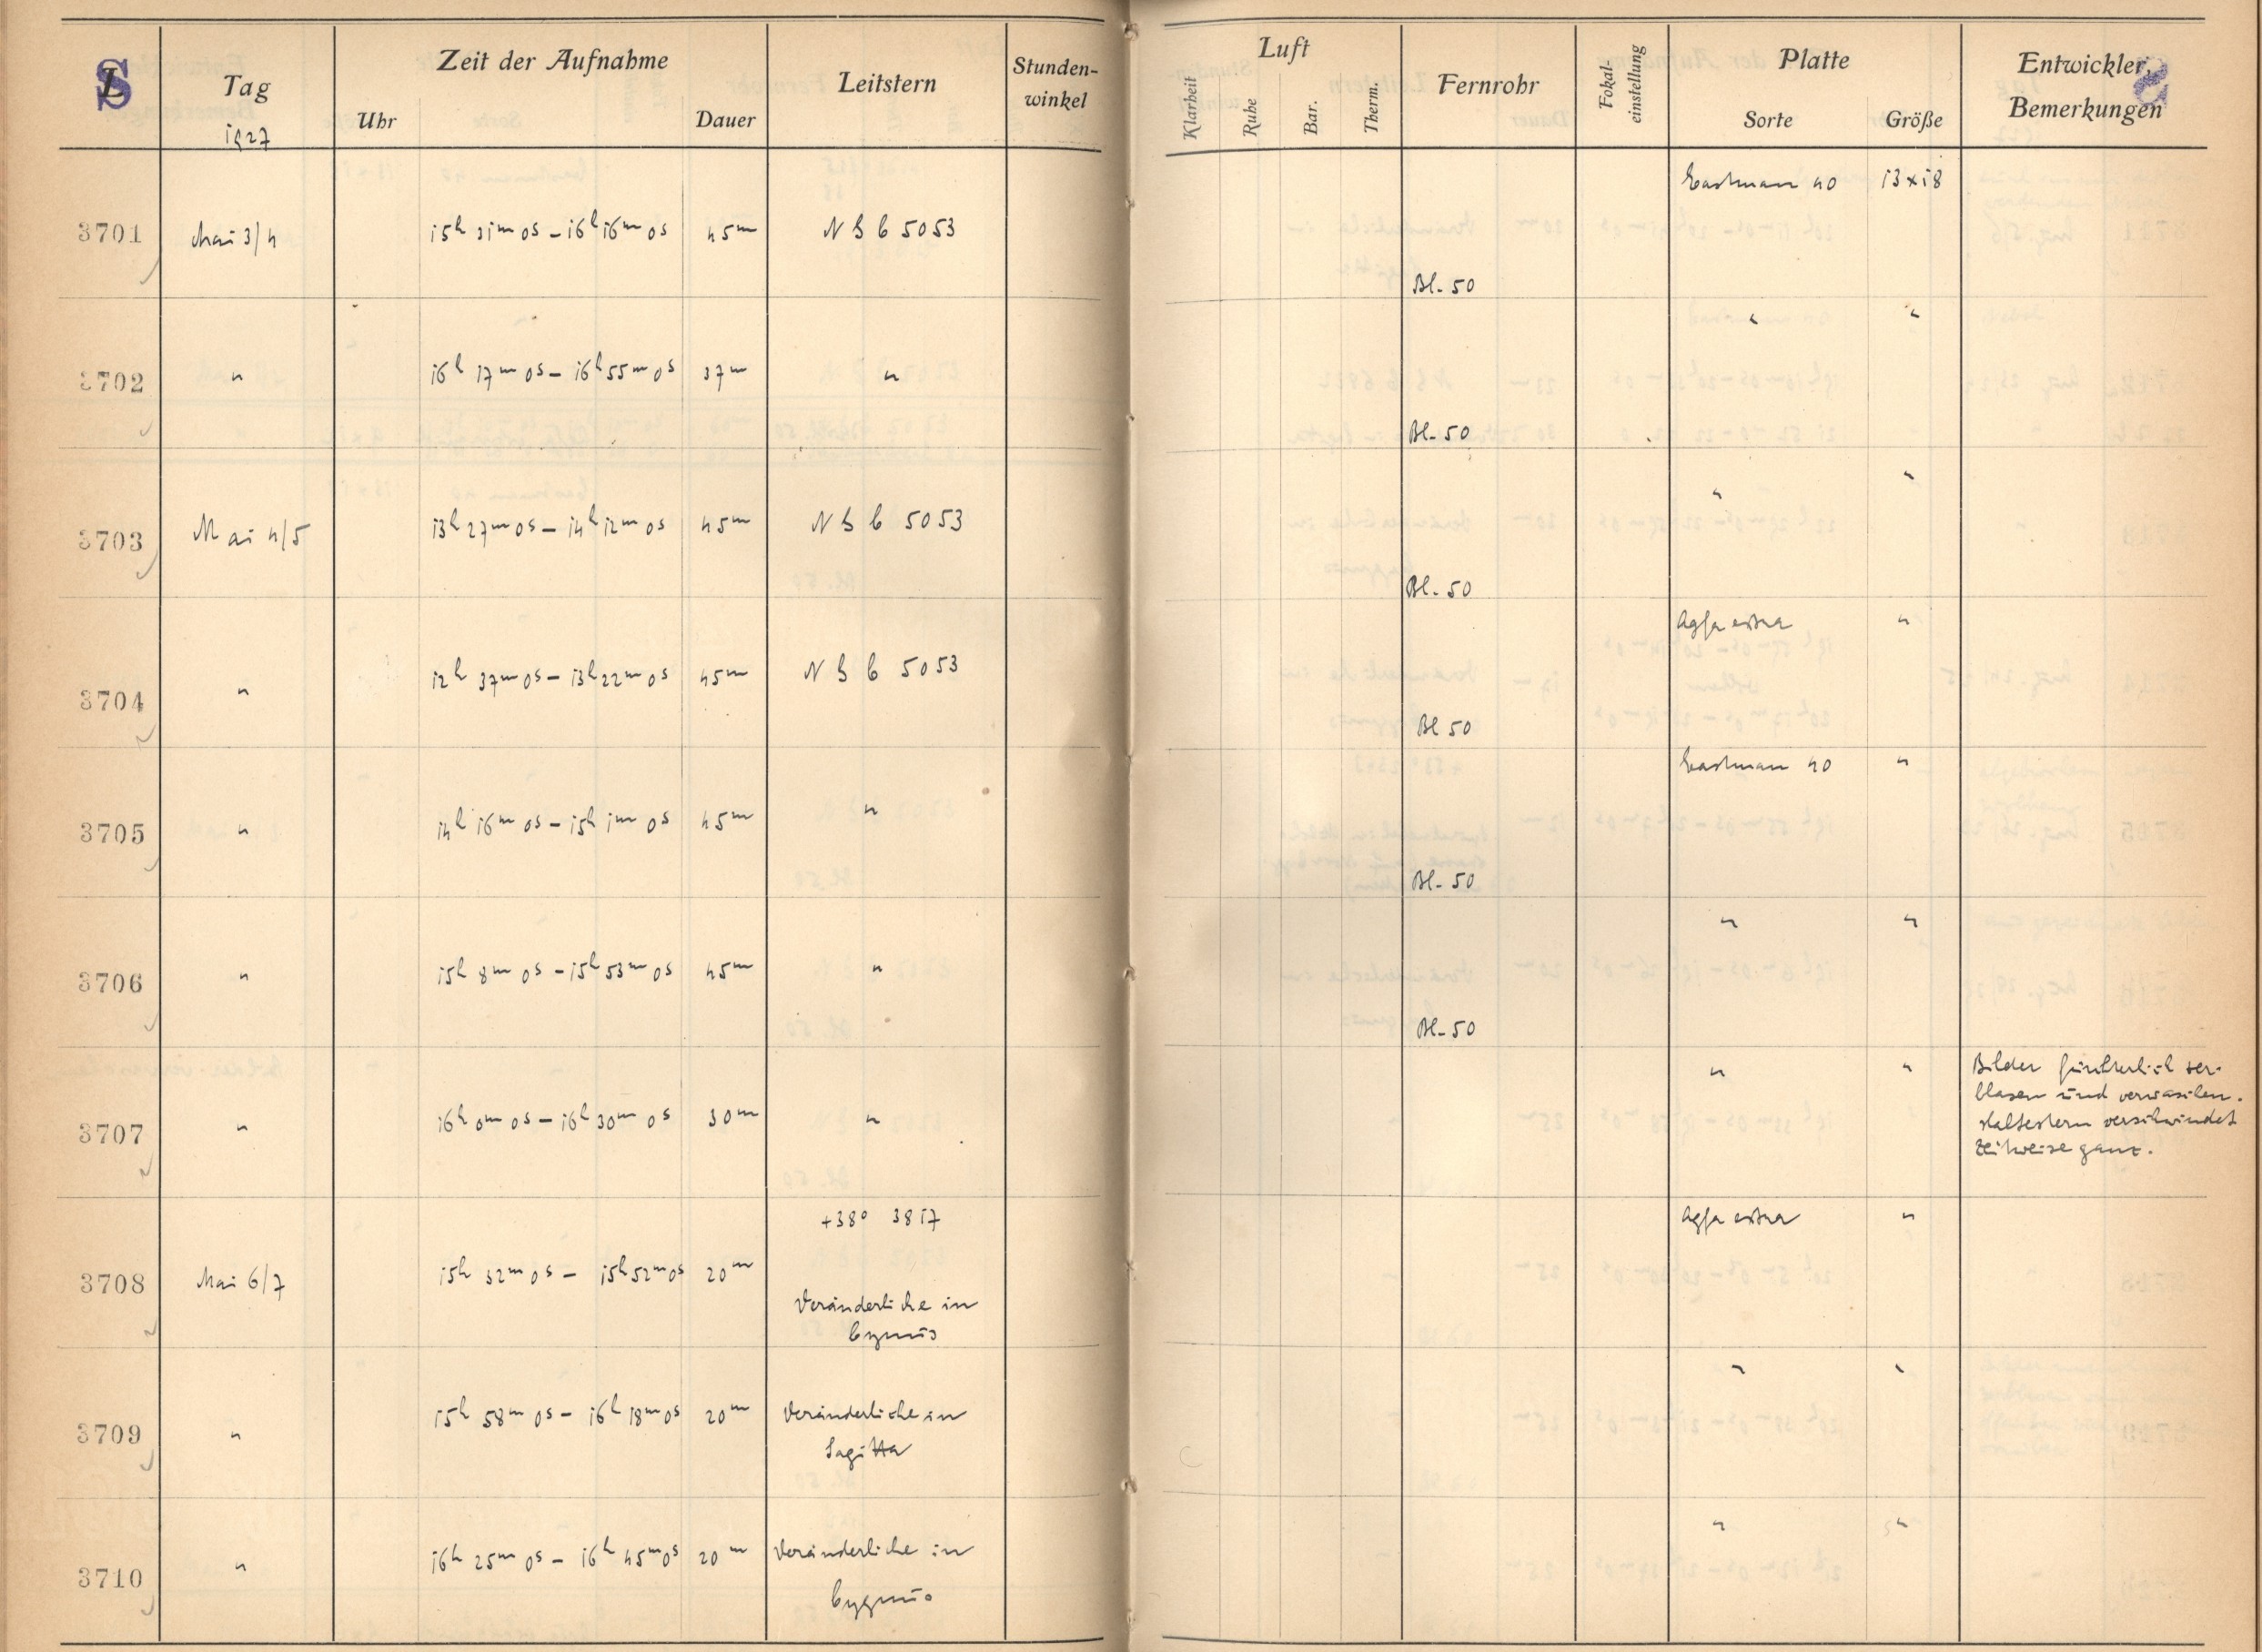 S Tag Zeit der Aufnahme Leitstern Stunden-winkel Luft Fernrohr Fokal-einstellung Platte Entwickler, Bemerkungen S
1927 Uhr Dauer Klarheit Ruhe Bar. Therm. Sorte Größe
Eastman 40 13x18
3701 Mai 3/4 15h 31m 0s – 16h 16m 0s 45m N G C 5053
Bl. 50
" "
3702 " 16h 17m 0s – 16h 55m 0s 37m "
Bl. 50
" "
3703 Mai 4/5 13h 27m 0s – 14h 12m 0s 45m N G C 5053
Bl. 50
Agfa extra "
3704 " 12h 37m 0s – 13h 22m 0s 45m N G C 5053
Bl 50
Eastman 40 "
3705 " 14h 16m 0s – 15h 1m 0s 45m "
Bl. 50
" "
3706 " 15h 8m 0s – 15h 53m 0s 45m "
Bl. 50
" " Bilder fürchterlich zer-
blasen und verwaschen.
3707 " 16h 0m 0s – 16h 30m 0s 30m " Haltestern verschwindet
zeitweise ganz.
+38° 3817 Agfa extra "
3708 Mai 6/7 15h 32m 0s – 15h 52m 0s 20m
Veränderliche in
Cygnus
" "
3709 " 15h 58m 0s – 16h 18m 0s 20m Veränderliche in
Sagitta
" "
3710 " 16h 25m 0s – 16h 45m 0s 20m Veränderliche in
Cygnus